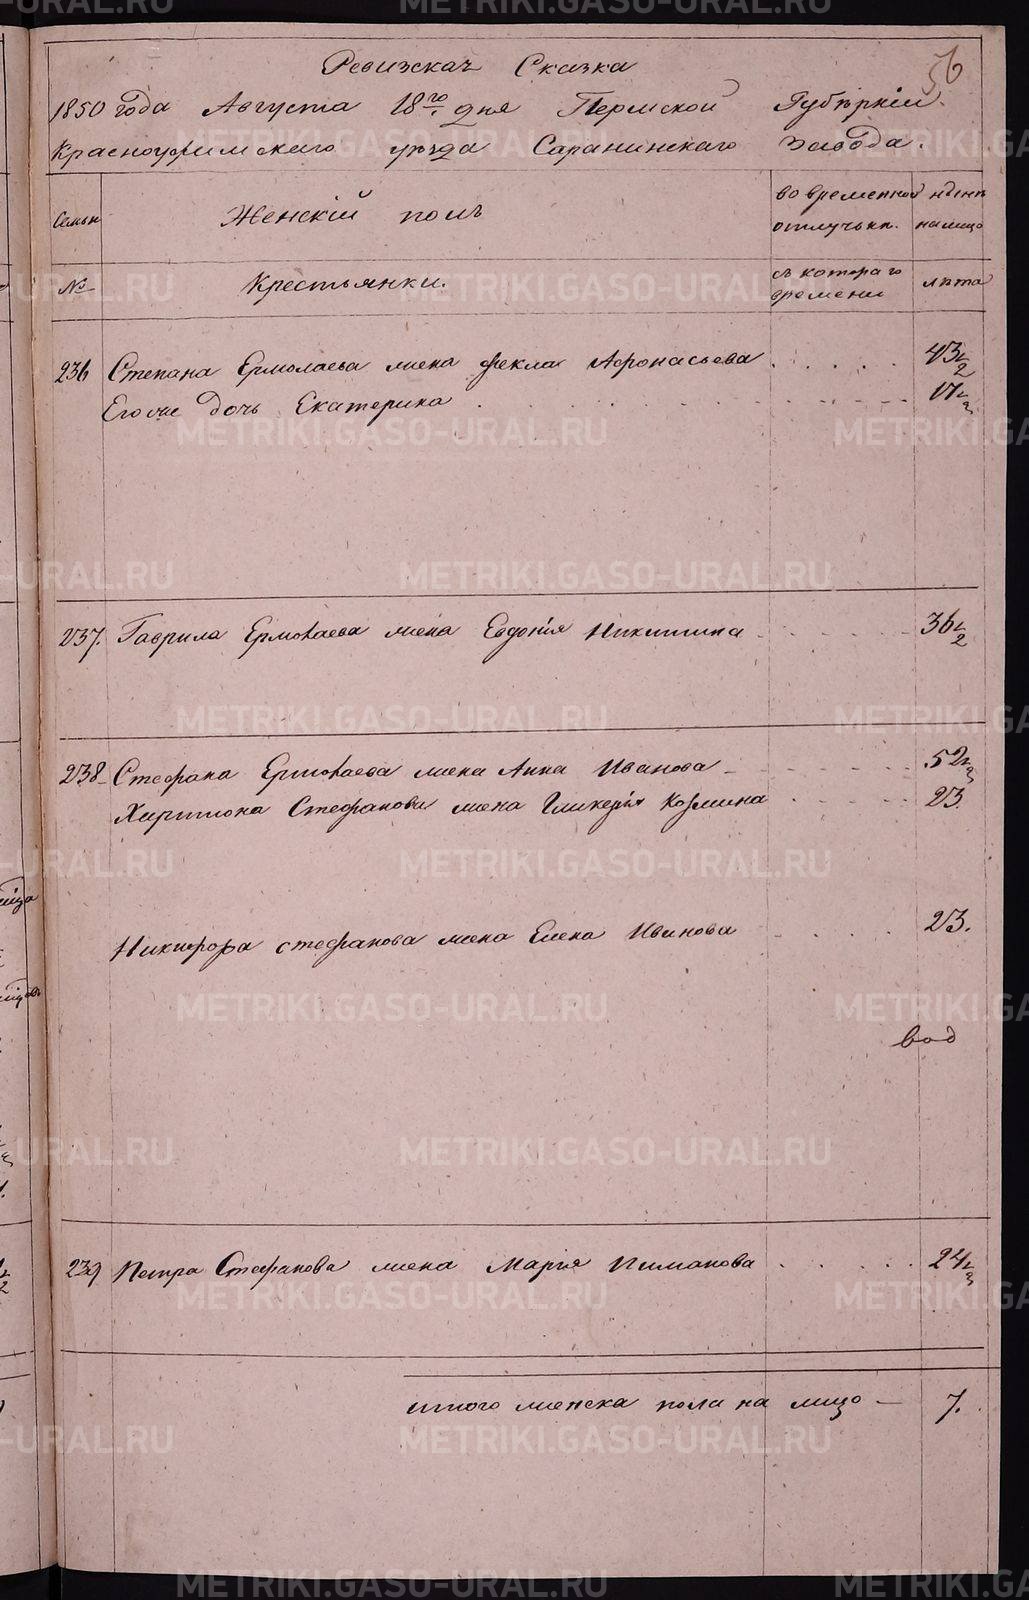 56
Ревизская Сказка
1850 года Августа 18го дня Пермской Губернiи.
Красноуфимскаго уезда Саранинскаго завода.
Семьи Женскiй полъ во временной отлучьки. ныне налицо
№ Крестьянки. съ котораго времени лѣта
236 Степана Ермолаева жена Фекла Афонасьева 43 1/2
Его же дочь Екатерина 17 1/2
237. Гаврила Ермолаева жена Евдокiя Никитина 36 1/2
238 Стефана Ермолаева жена Анна Иванова 52 1/2
Харитона Стефанова жена Гликерiя Козмина 23
Никифора стефанова жена Елена Иванова 23.
239 Петра Стефанова жена Марiя Пиманова 24 1/2
итого женска пола на лицо — 7.
METRIKI.GASO-URAL.RU